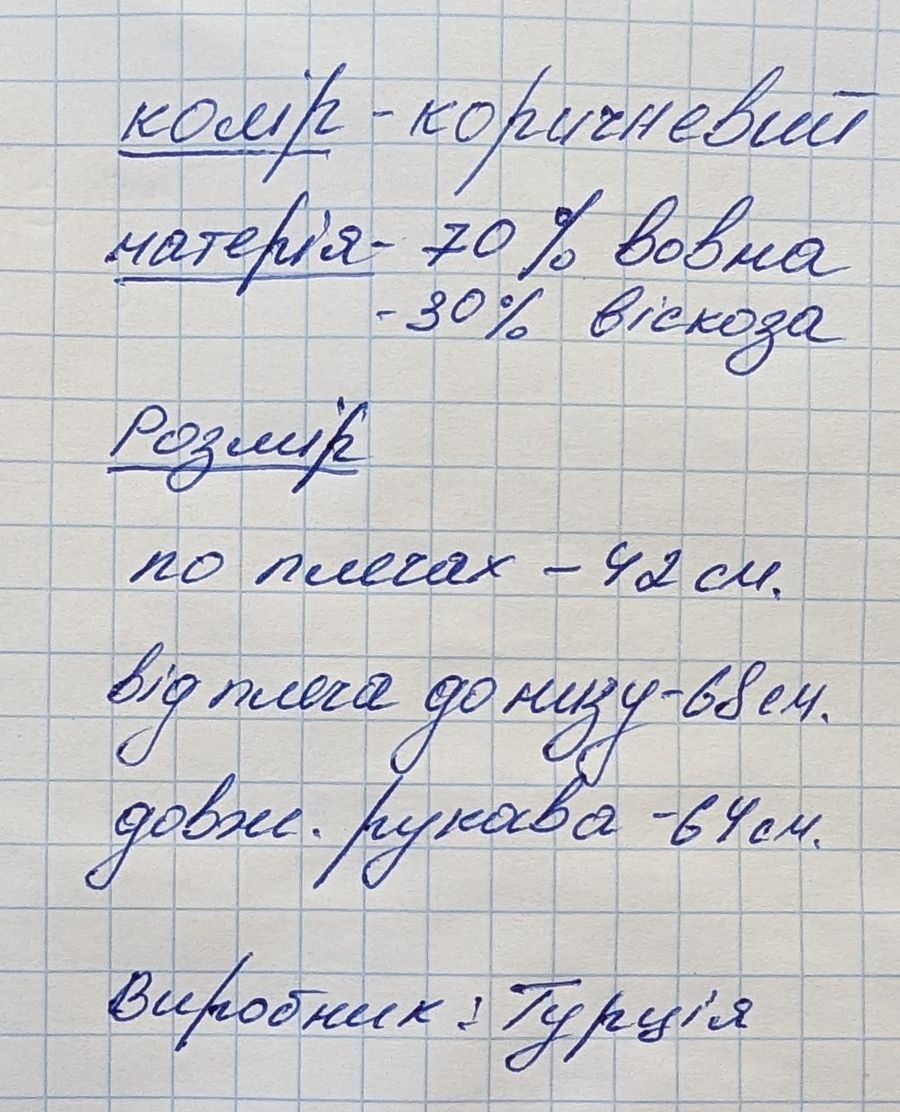 колір - коричневий
матерія - 70 % вовна
- 30 % віскоза
Розмір
по плечах - 42 см.
від плеча до низу - 68 см.
довж. рукава - 64 см.
Виробник : Турція